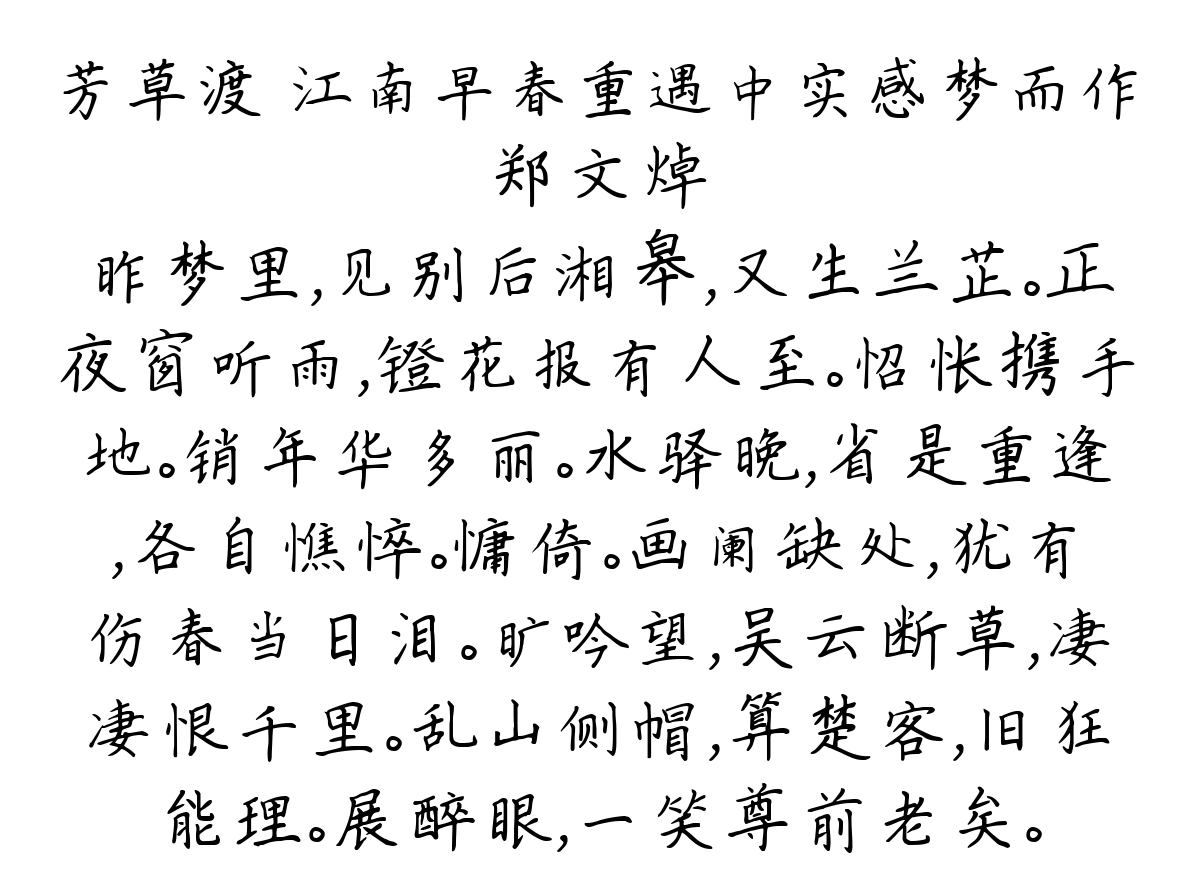 芳草渡 江南早春重遇中实感梦而作
郑文焯
昨梦里,见别后湘皋,又生兰芷。正
夜窗听雨,镫花报有人至。怊怅携手
地。销年华多丽。水驿晚,省是重逢
,各自憔悴。慵倚。画阑缺处,犹有
伤春当日泪。旷吟望,吴云断草,凄
凄恨千里。乱山侧帽,算楚客,旧狂
能理。展醉眼,一笑尊前老矣。